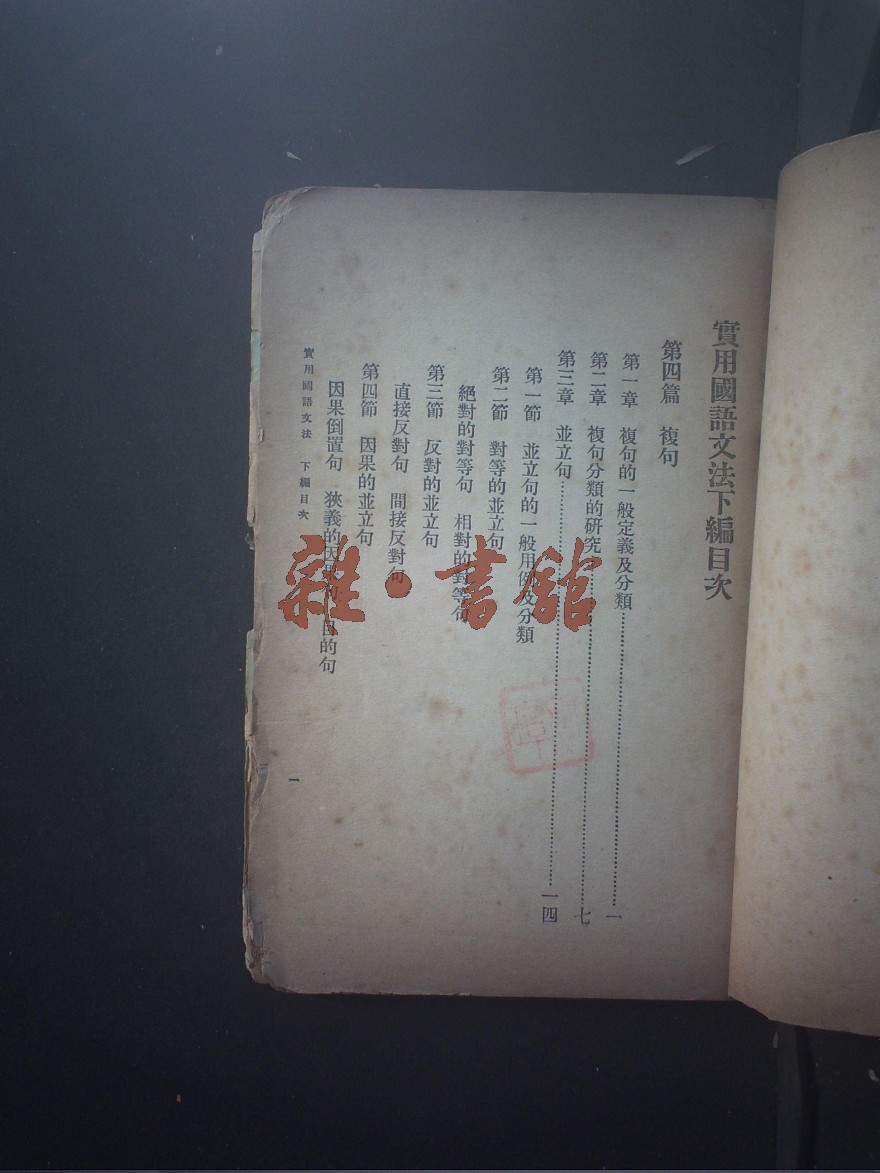 實用國語文法下編目次
第四篇 複句
第一章 複句的一般定義及分類……一
第二章 複句分類的研究……七
第三章 並立句……一四
第一節 並立句的一般用例及分類
第二節 對等的並立句
絕對的對等句 相對的對等句
第三節 反對的並立句
直接反對句 間接反對句
第四節 因果的並立句
因果倒置句 狹義的因果句 目的句
實用國語文法 下編目次
一
雜·書館